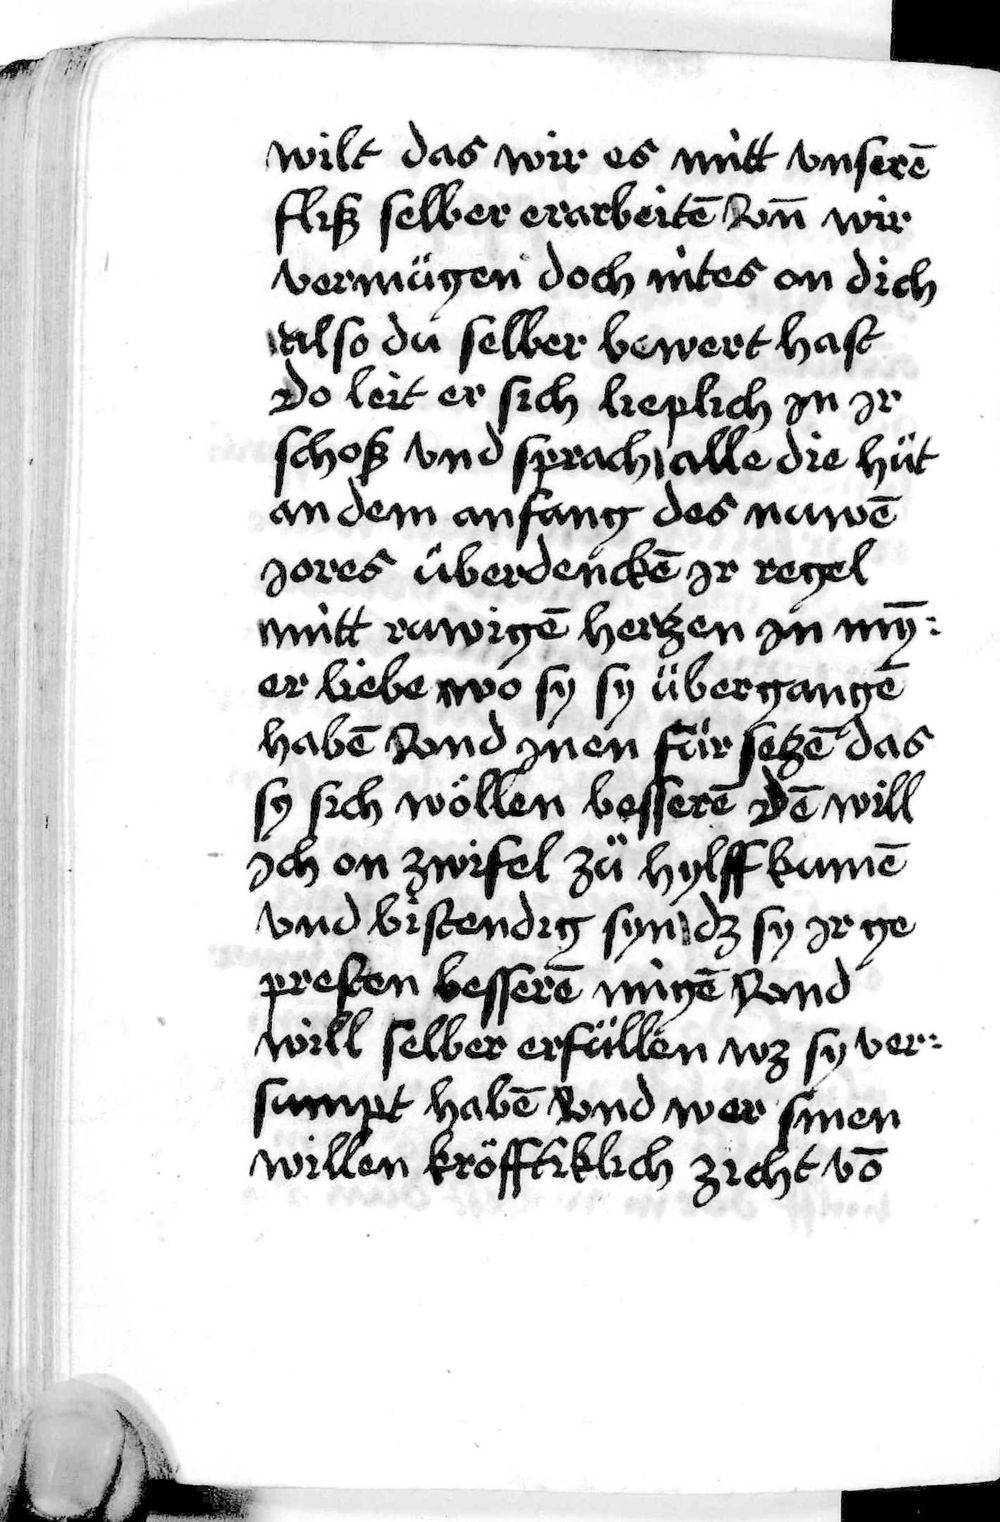 wilt das wir es mitt vnserē
fliß selber erarbeitē Von̄ wir
vermügen doch nites on dich
also du selber bewert hast
Do leit er sich lieplich jn jr
schoß vnd sprach alle die hüt
an dem anfang des nuwē
jores überdenckē jr regel
mitt ruwigē hertzen jn mȳ:
er liebe wo sy sy übergangē
habē Vnd jnen für setzē das
sy sich wöllen besserē Dē will
jch on zwifel zü hylff kumē
vnd bistendig syn dz sy jr ge
presten besserē migē Vnd
will selber erfüllen wz sy ver:
sumpt habē Vnd wer sinen
willen kröfftiklich zicht vō